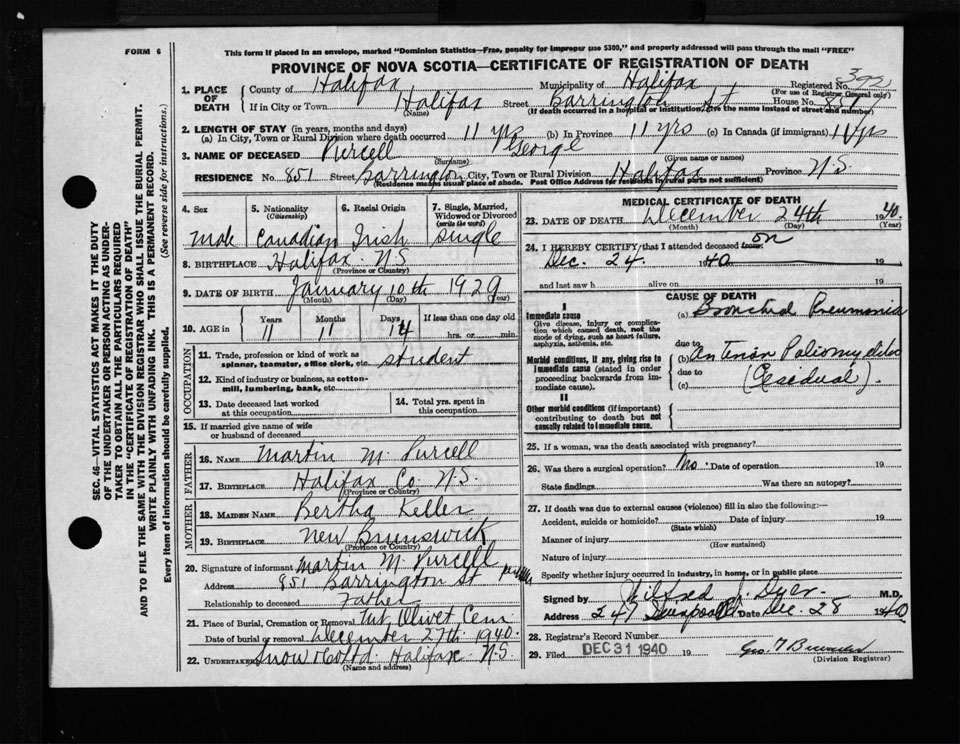 FORM 6
This form if placed in an envelope, marked "Dominion Statistics—Free, penalty for improper use $300," and properly addressed will pass through the mail "FREE"
PROVINCE OF NOVA SCOTIA—CERTIFICATE OF REGISTRATION OF DEATH
1. PLACE OF DEATH
County of Halifax Municipality of Halifax Registered No.
(For use of Registrar General only)
If in City or Town Halifax Street Barrington St House No. 851
(Name) (If death occurred in a hospital or institution, give the name instead of street and number)
2. LENGTH OF STAY (in years, months and days)
(a) In City, Town or Rural Division where death occurred 11 yrs (b) In Province 11 yrs (c) In Canada (if immigrant) 11 yrs
3. NAME OF DECEASED Purcell George
(Surname) (Given name or names)
RESIDENCE No. 851 Street Barrington City, Town or Rural Division Halifax Province N.S.
(Residence means usual place of abode. Post Office Address for residents in rural parts not sufficient)
4. Sex 5. Nationality (Citizenship) 6. Racial Origin 7. Single, Married, Widowed or Divorced (write the word)
Male Canadian Irish Single
8. BIRTHPLACE Halifax N.S.
(Province or Country)
9. DATE OF BIRTH January 10th 1929
(Month) (Day) (Year)
10. AGE in Years Months Days If less than one day old
11 11 14 hrs. or min.
OCCUPATION
11. Trade, profession or kind of work as spinner, teamster, office clerk, etc. student
12. Kind of industry or business, as cotton-mill, lumbering, bank, etc.
13. Date deceased last worked at this occupation
14. Total yrs. spent in this occupation
15. If married give name of wife or husband of deceased
FATHER
16. NAME Martin M. Purcell
17. BIRTHPLACE Halifax Co. N.S.
(Province or Country)
MOTHER
18. MAIDEN NAME Bertha Keller
19. BIRTHPLACE New Brunswick
(Province or Country)
20. Signature of informant Martin M. Purcell
Address 851 Barrington St
Relationship to deceased Father
21. Place of Burial, Cremation or Removal Mt. Olivet Cem
Date of burial or removal December 27th 1940.
22. UNDERTAKER Snow & Co Ltd. Halifax N.S.
(Name and address)
MEDICAL CERTIFICATE OF DEATH
23. DATE OF DEATH December 24th 1940.
(Month) (Day) (Year)
24. I HEREBY CERTIFY that I attended deceased from: on
Dec. 24 1940 19
and last saw h alive on 19
CAUSE OF DEATH
I
Immediate cause
Give disease, injury or complication which caused death, not the mode of dying, such as heart failure, asphyxia, asthenia, etc.
(a) Bronchial Pneumonia
due to
Morbid conditions, if any, giving rise to immediate cause (stated in order proceeding backwards from immediate cause).
(b) Anterior Poliomyelitis
due to
(c) (Residual).
II
Other morbid conditions (if important) contributing to death but not causally related to immediate cause.
25. If a woman, was the death associated with pregnancy?
26. Was there a surgical operation? No. Date of operation 19
State findings Was there an autopsy?
27. If death was due to external causes (violence) fill in also the following:—
Accident, suicide or homicide? Date of injury 19
(State which)
Manner of injury
(How sustained)
Nature of injury
Specify whether injury occurred in industry, in home, or in public place
Signed by Wilfred J. Dyer M.D.
Address 247 Date Dec. 28 1940
28. Registrar's Record Number
29. Filed DEC 31 1940 19
(Division Registrar)
SEC. 46—VITAL STATISTICS ACT MAKES IT THE DUTY
OF THE UNDERTAKER OR PERSON ACTING AS UNDER-
TAKER TO OBTAIN ALL THE PARTICULARS REQUIRED
IN THE "CERTIFICATE OF REGISTRATION OF DEATH"
AND TO FILE THE SAME WITH THE DIVISION REGISTRAR WHO SHALL ISSUE THE BURIAL PERMIT.
WRITE PLAINLY WITH UNFADING INK. THIS IS A PERMANENT RECORD.
Every item of information should be carefully supplied. (See reverse side for instructions.)